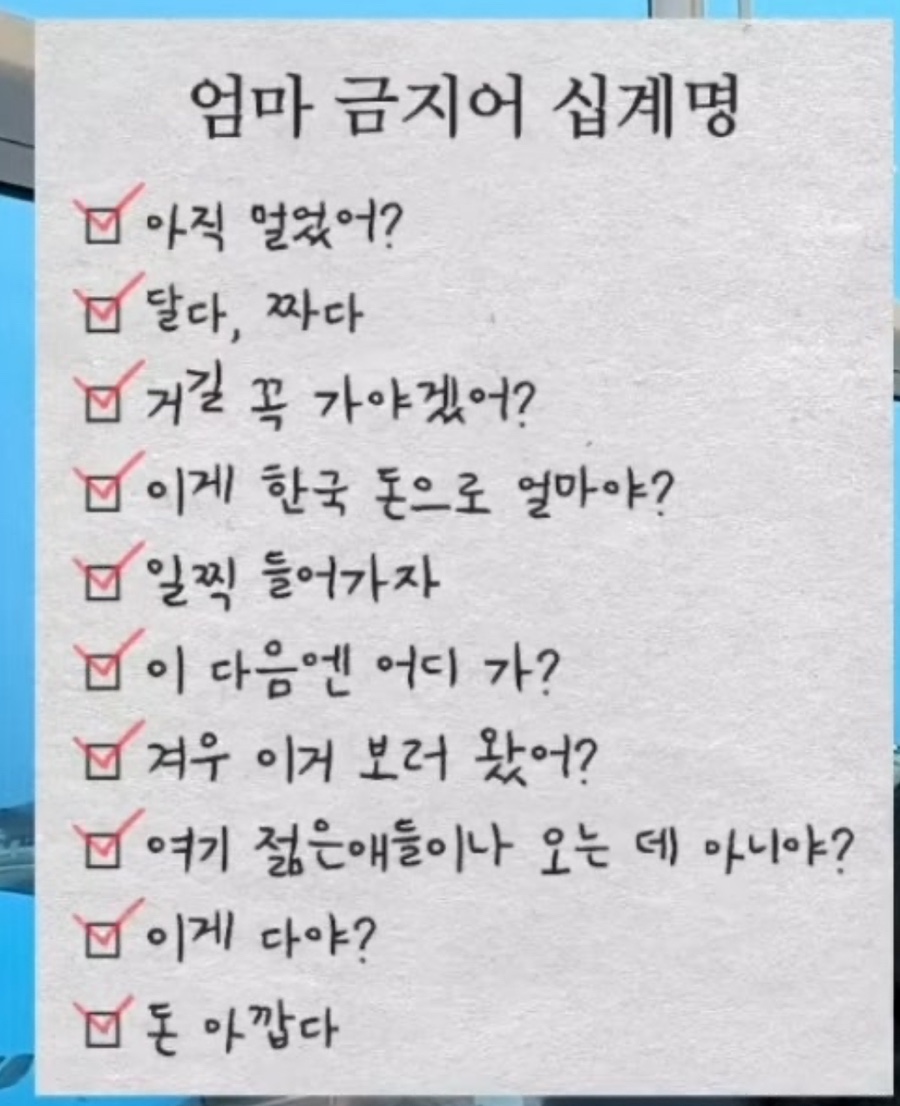 엄마 금지어 십계명
아직 멀었어?
달다, 짜다
거길 꼭 가야겠어?
이게 한국 돈으로 얼마야?
일찍 들어가자
이 다음엔 어디 가?
겨우 이거 보러 왔어?
여기 젊은애들이나 오는 데 아니야?
이게 다야?
돈 아깝다